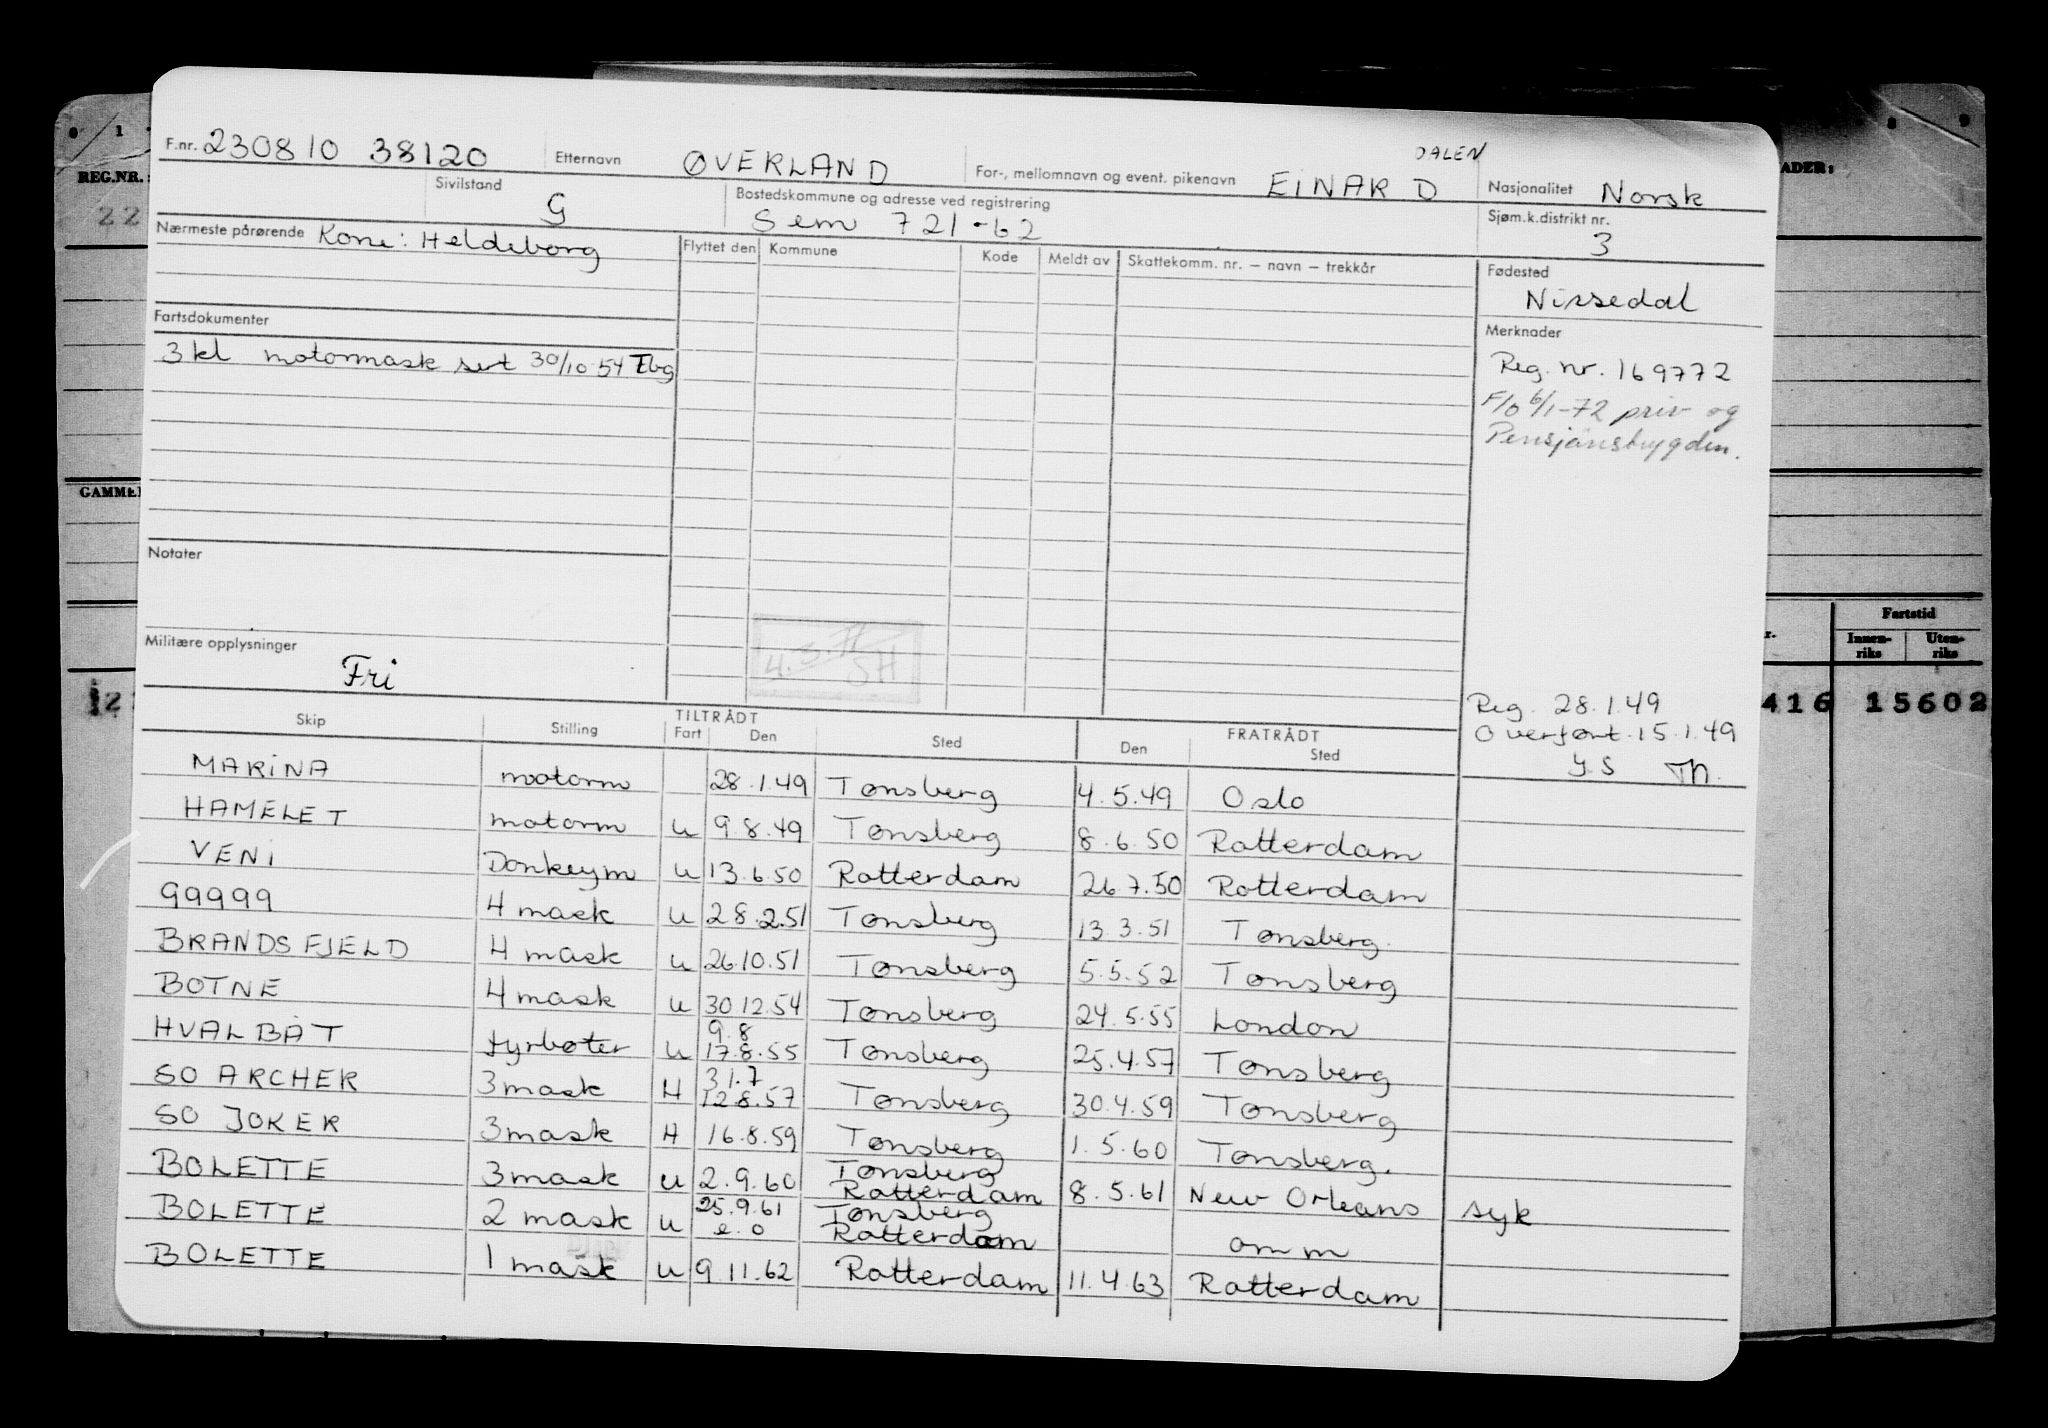 0 1 8 9
REG.NR. ADER:
22
F.nr. 230810 38120 Etternavn ØVERLAND For-, mellomnavn og event. pikenavn EINAR D DALEN Nasjonalitet Norsk
Sivilstand G Bostedskommune og adresse ved registrering Sem 721-62 Sjøm.k.distrikt nr. 3
Nærmeste pårørende Kone: Heldeborg Flyttet den Kommune Kode Meldt av Skattekomm. nr. – navn – trekkår Fødested
Nissedal
Fartsdokumenter Merknader
3 kl motormask sert 30/10 54 Tbg Reg. nr. 169772
F/O 6/1-72 priv og
Pensjonstrygden.
GAMMEL
Notater
4.3.71
SH
Militære opplysninger
Fri
r. Fartstid
Innen-riks Uten-riks
416 15602
Reg. 28.1.49
Overført 15.1.49
Y.S Th.
TILTRÅDT FRATRÅDT
Skip Stilling Fart Den Sted Den Sted
MARINA motorm 28.1.49 Tønsberg 4.5.49 Oslo
HAMELET motorm U 9.8.49 Tønsberg 8.6.50 Rotterdam
VENI Donkeym U 13.6.50 Rotterdam 26.7.50 Rotterdam
99999 4 mask U 28.2.51 Tønsberg 13.3.51 Tønsberg.
BRANDSFJELD 4 mask U 26.10.51 Tønsberg 5.5.52 Tønsberg
BOTNE 4 mask U 30.12.54 Tønsberg 24.5.55 London
HVALBÅT fyrbøter U 9.8 17.8.55 Tønsberg 25.4.57 Tønsberg
SO ARCHER 3 mask H 31.7 12.8.57 Tønsberg 30.4.59 Tønsberg
SO JOKER 3 mask H 16.8.59 Tønsberg 1.5.60 Tønsberg.
BOLETTE 3 mask U 2.9.60 Tønsberg Rotterdam 8.5.61 New Orleans syk
BOLETTE 2 mask U 25.9.61 e.o Tønsberg Rotterdam omm
BOLETTE 1 mask U 9 11.62 Rotterdam 11.4.63 Rotterdam